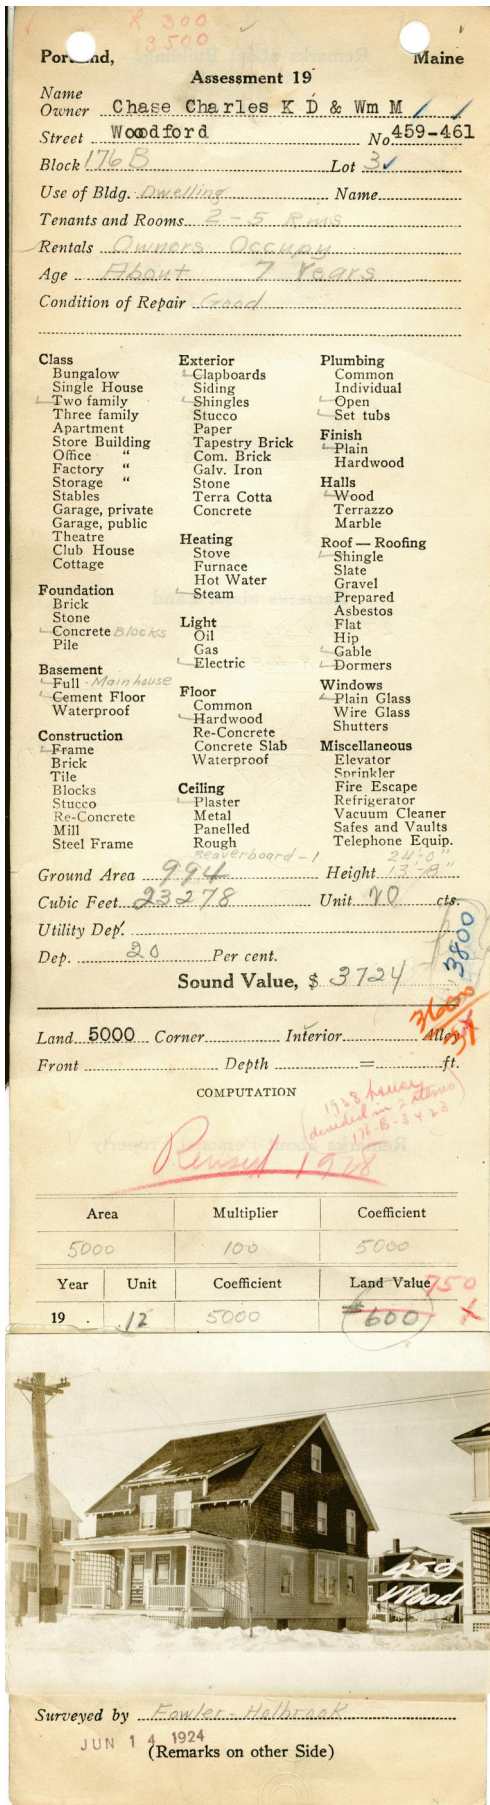 x 300
3500
Portland, Maine
Assessment 19
Name
Owner Chase Charles K D & Wm M
Street Woodford No. 459-461
Block 176 B Lot 3
Use of Bldg. Dwelling Name
Tenants and Rooms 2-5 Rms
Rentals Owners Occupy
Age About 7 Years
Condition of Repair Good
Class
Bungalow
Single House
Two family
Three family
Apartment
Store Building
Office "
Factory "
Storage "
Stables
Garage, private
Garage, public
Theatre
Club House
Cottage
Foundation
Brick
Stone
Concrete Blocks
Pile
Basement
Full - Main house
Cement Floor
Waterproof
Construction
Frame
Brick
Tile
Blocks
Stucco
Re-Concrete
Mill
Steel Frame
Exterior
Clapboards
Siding
Shingles
Stucco
Paper
Tapestry Brick
Com. Brick
Galv. Iron
Stone
Terra Cotta
Concrete
Heating
Stove
Furnace
Hot Water
Steam
Light
Oil
Gas
Electric
Floor
Common
Hardwood
Re-Concrete
Concrete Slab
Waterproof
Ceiling
Plaster
Metal
Panelled
Rough
Beaverboard-1
Plumbing
Common
Individual
Open
Set tubs
Finish
Plain
Hardwood
Halls
Wood
Terrazzo
Marble
Roof — Roofing
Shingle
Slate
Gravel
Prepared
Asbestos
Flat
Hip
Gable
Dormers
Windows
Plain Glass
Wire Glass
Shutters
Miscellaneous
Elevator
Sprinkler
Fire Escape
Refrigerator
Vacuum Cleaner
Safes and Vaults
Telephone Equip.
24'-0"
Ground Area 994 Height 13'-8"
Cubic Feet 23278 Unit 20 cts.
Utility Dep.
Dep. 20 Per cent.
3800
Sound Value, $ 3724
3600
Land 5000 Corner Interior Alley
Front Depth = ft.
COMPUTATION
1938 house
(divided in 2 items)
176-B-3 & 23
Revised 1928
Area Multiplier Coefficient
5000 100 5000
Year Unit Coefficient Land Value 750
19 . .12 5000 $600 x
459
Wood
Surveyed by Fowler-Holbrook
JUN 14 1924
(Remarks on other Side)